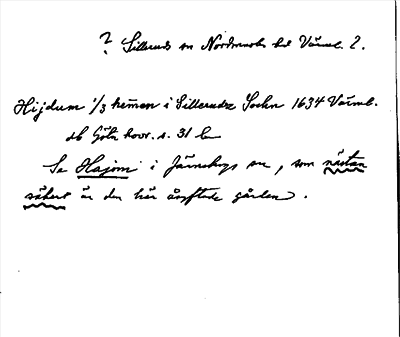 ? Sillerud sn Nordmarks hd Värml. 2.
Hijdum 1/3 hemen i Sillerudz Sochn 1634 Värml.
db Göta hovr. s. 31
Se Hajom i Järnskogs sn, som nästan
säkert är den här åsyftade gården.